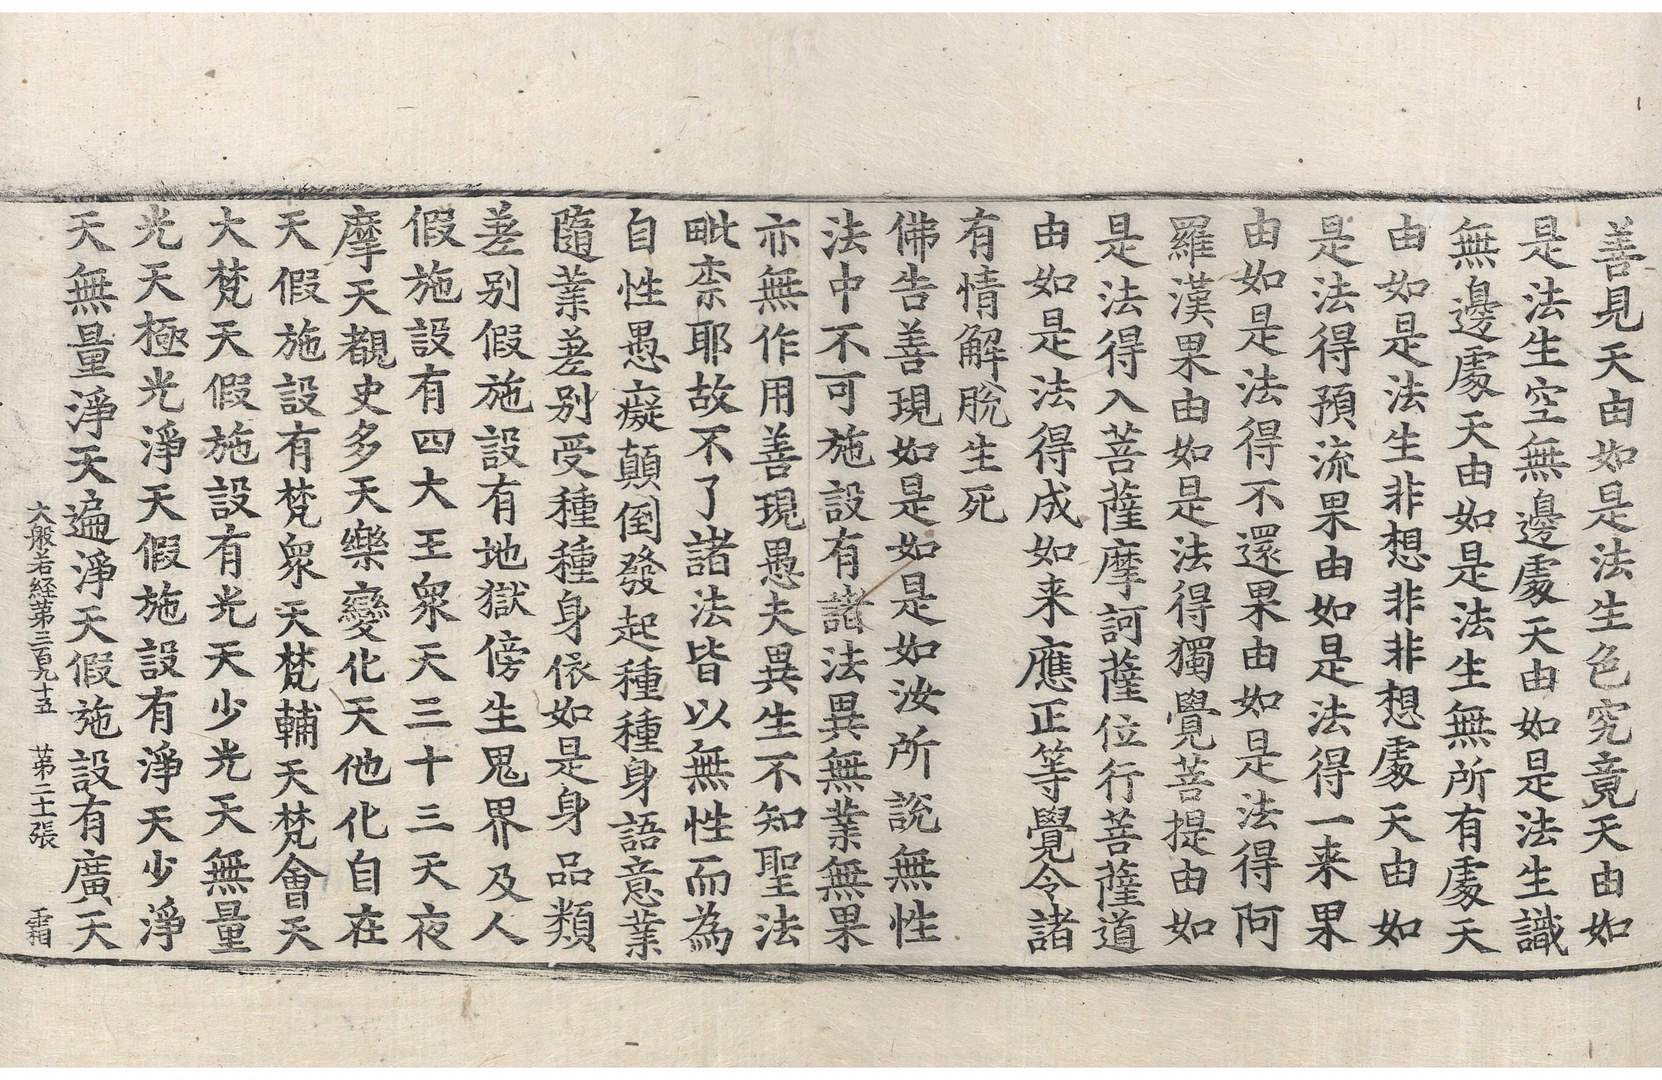 善見天由如是法生色究竟天由如
是法生空無邊處天由如是法生識
無邊處天由如是法生無所有處天
由如是法生非想非非想處天由如
是法得預流果由如是法得一来果
由如是法得不還果由如是法得阿
羅漢果由如是法得獨覺菩提由如
是法得入菩薩摩訶薩位行菩薩道
由如是法得成如来應正等覺令諸
有情解脫生死
佛告善現如是如是如汝所說無性
法中不可施設有諸法異無業無果
亦無作用善現愚夫異生不知聖法
毗柰耶故不了諸法皆以無性而為
自性愚癡顛倒發起種種身語意業
隨業差別受種種身依如是身品類
差別假施設有地獄傍生鬼界及人
假施設有四大王眾天三十三天夜
摩天覩史多天樂變化天他化自在
天假施設有梵眾天梵輔天梵會天
大梵天假施設有光天少光天無量
光天極光淨天假施設有淨天少淨
天無量淨天遍淨天假施設有廣天
大般若経苐三百九十五 苐二十張 霜